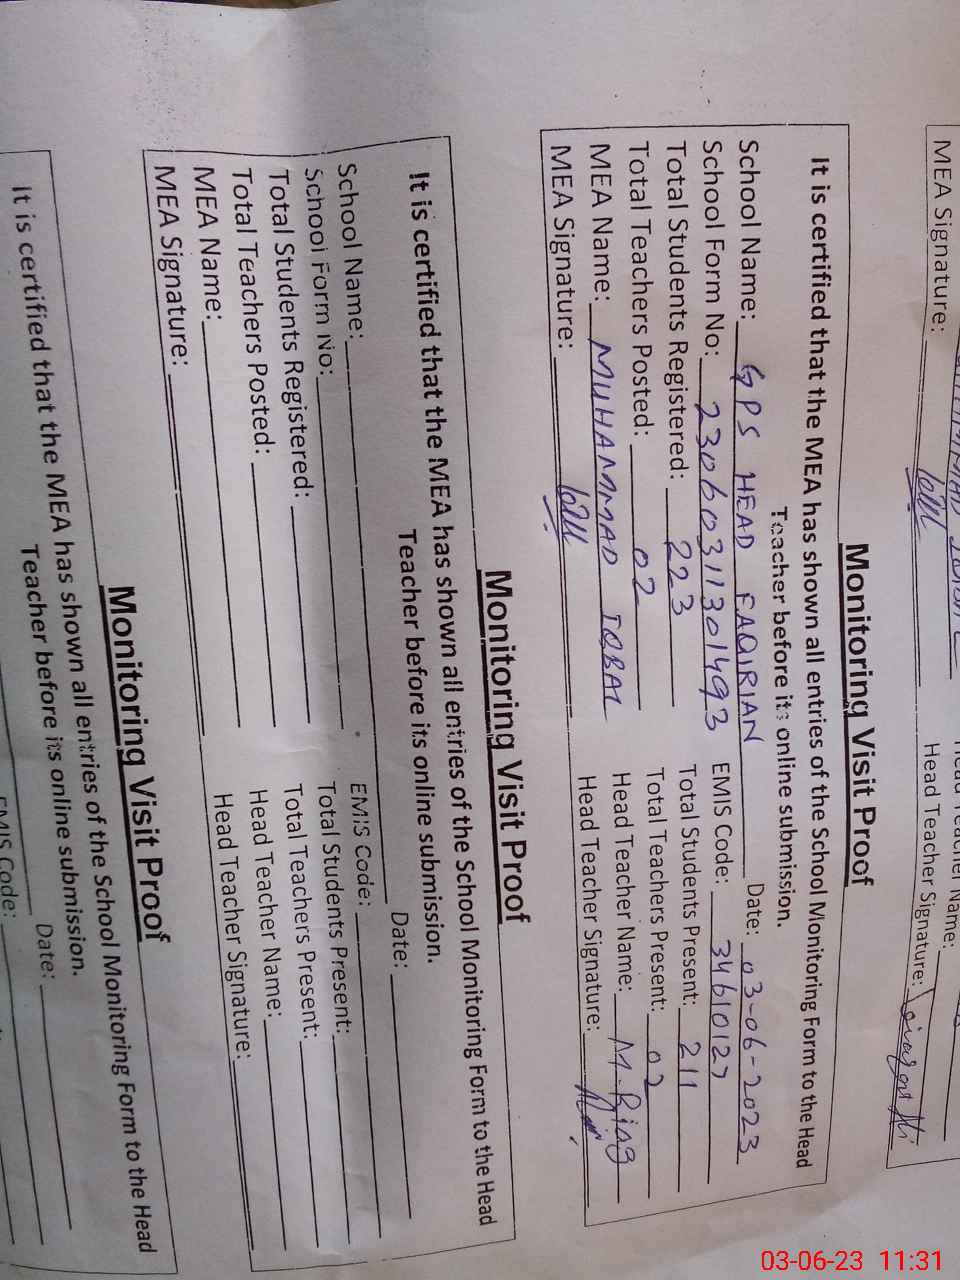 MEA Signature:
Head Teacher Signature:
Monitoring Visit Proof
It is certified that the MEA has shown all entries of the School Monitoring Form to the Head
Teacher before its online submission.
School Name: GPS HEAD FAQIRIAN Date: 03-06-2023
School Form No: 2306031301493 EMIS Code: 34610127
Total Students Registered: 223 Total Students Present: 211
Total Teachers Posted: 02 Total Teachers Present: 02
MEA Name: MUHAMMAD IQBAL Head Teacher Name: M. Riaz
MEA Signature: Head Teacher Signature:
Monitoring Visit Proof
It is certified that the MEA has shown all entries of the School Monitoring Form to the Head
Teacher before its online submission.
School Name: Date:
School Form No: EMIS Code:
Total Students Registered: Total Students Present:
Total Teachers Posted: Total Teachers Present:
MEA Name: Head Teacher Name:
MEA Signature: Head Teacher Signature:
Monitoring Visit Proof
It is certified that the MEA has shown all entries of the School Monitoring Form to the Head
Teacher before its online submission.
Date:
EMIS Code:
03-06-23 11:31